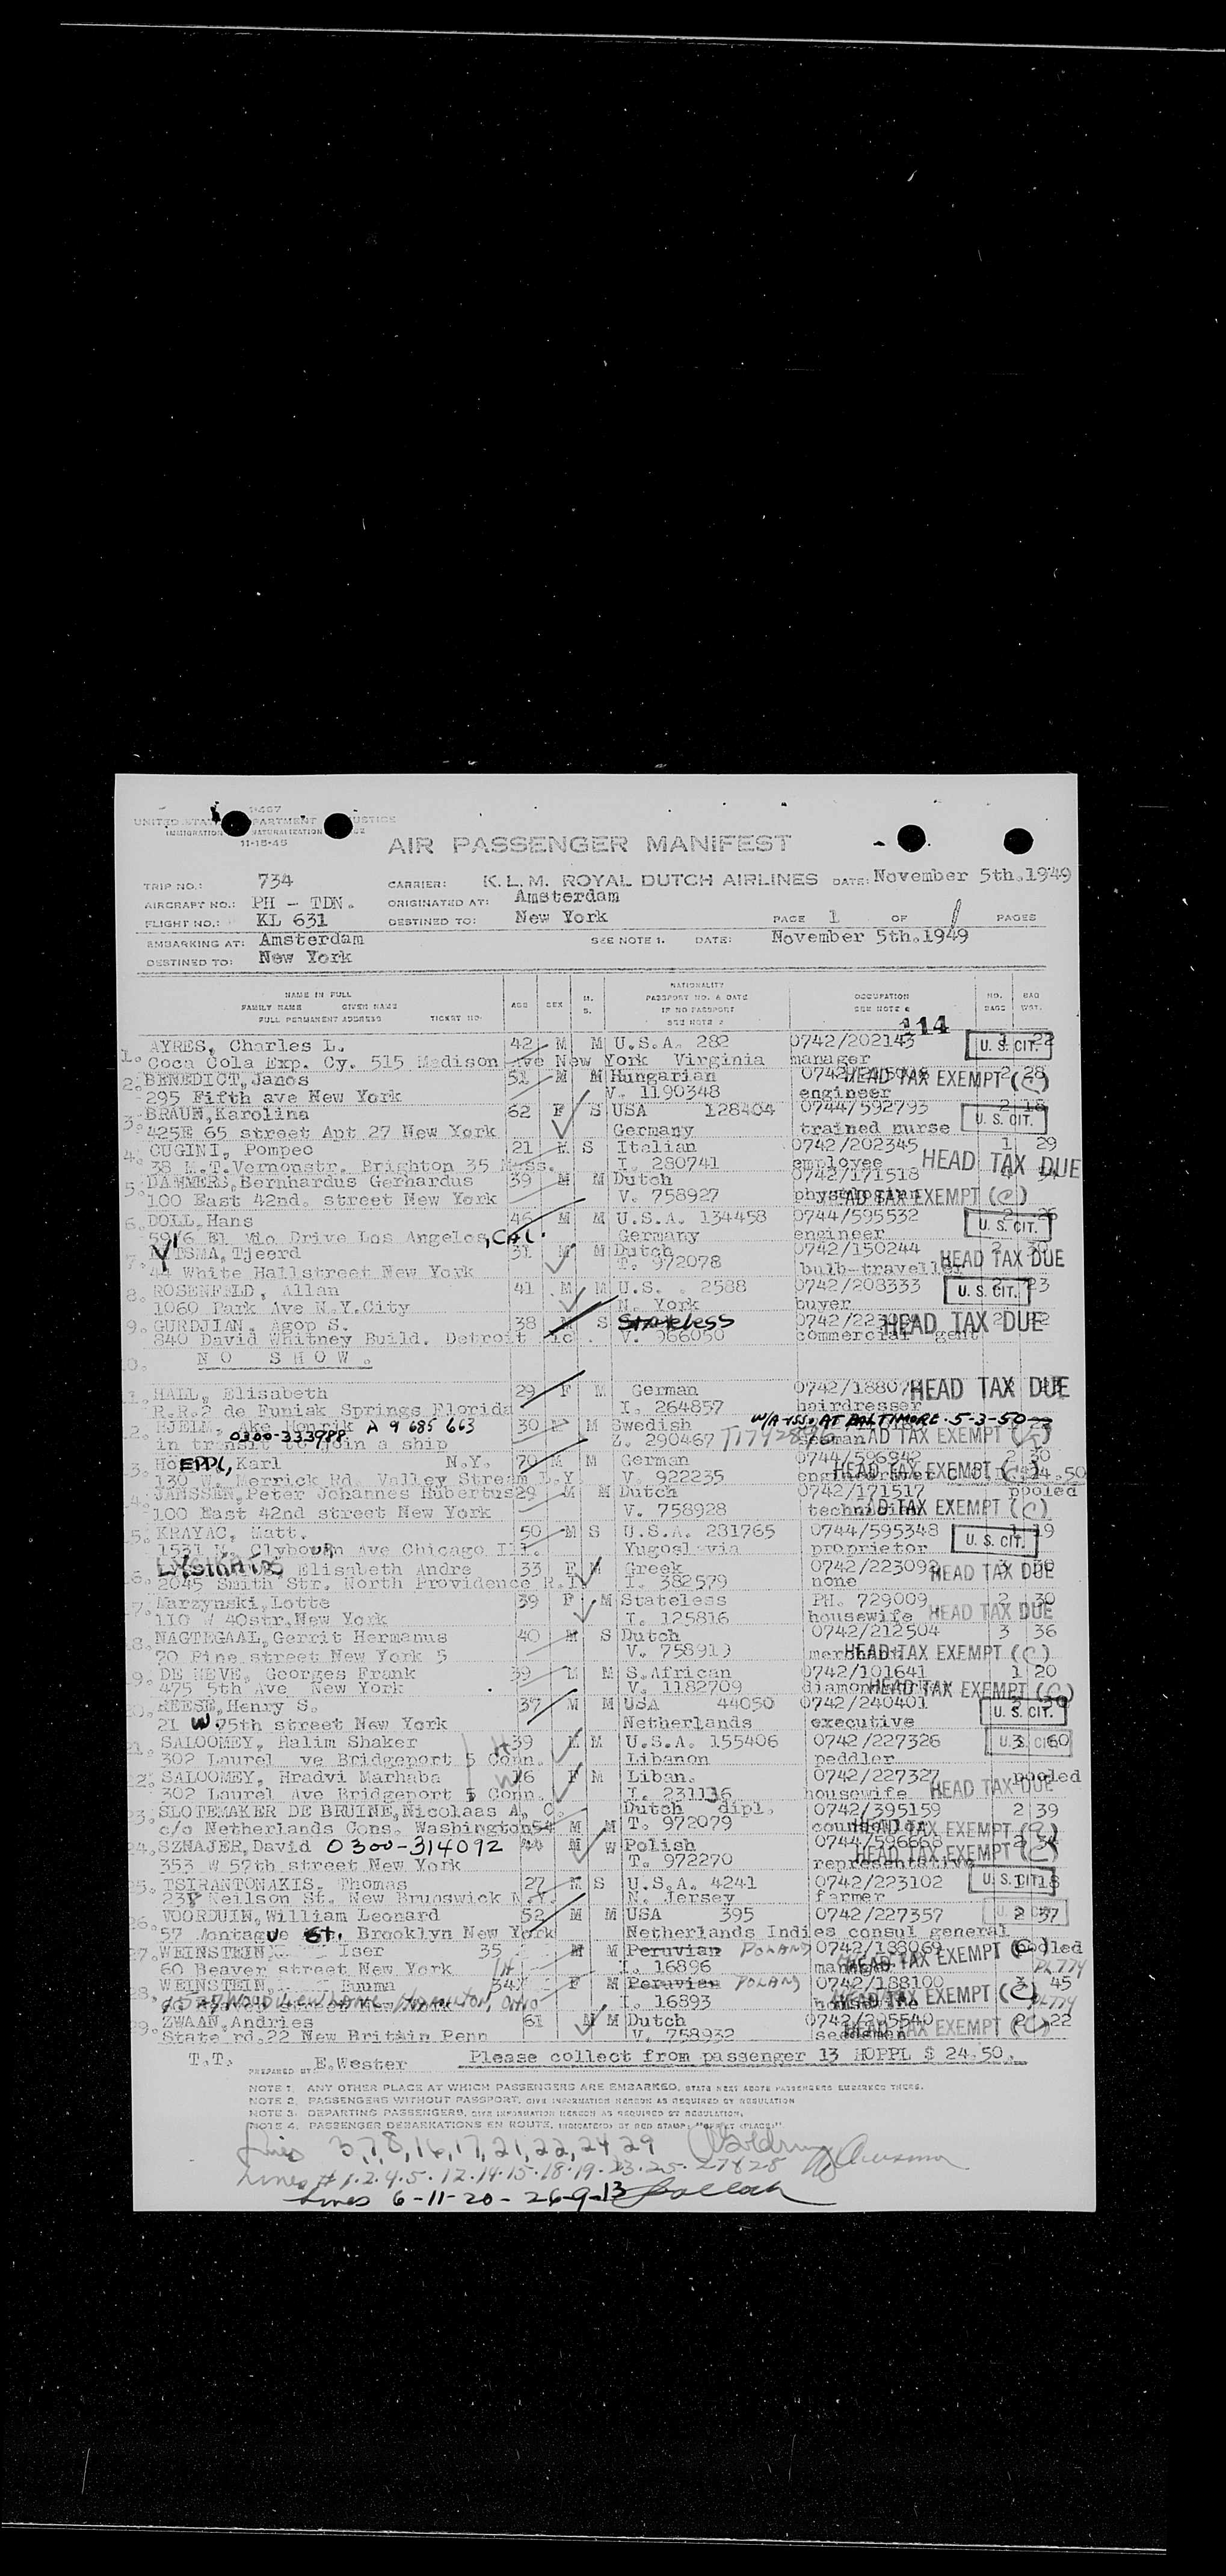 9467
UNITED STATES DEPARTMENT JUSTICE
IMMIGRATION NATURALIZATION
11-15-45
AIR PASSENGER MANIFEST
TRIP NO.: 734 CARRIER: K.L.M. ROYAL DUTCH AIRLINES DATE: November 5th.1949
AIRCRAFT NO.: PH - TDN. ORIGINATED AT: Amsterdam
FLIGHT NO.: KL 631 DESTINED TO: New York PAGE 1 OF 1 PAGES
EMBARKING AT: Amsterdam SEE NOTE 1. DATE: November 5th.1949
DESTINED TO: New York
NAME IN FULL
FAMILY NAME GIVEN NAME
FULL PERMANENT ADDRESS TICKET NO.
AGE SEX M. S.
NATIONALITY
PASSPORT NO. & DATE
IF NO PASSPORT
SEE NOTE 2
OCCUPATION
SEE NOTE
NO. BAGS BAG WGT.
114
1. AYRES, Charles L. 42 M M U.S.A. 282 0742/202143 1 22 U. S. CIT.
Coca Cola Exp. Cy. 515 Madison Ave New York Virginia manager
2. BENEDICT, Janos 51 M M Hungarian 2 28 HEAD TAX EXEMPT (C)
295 Fifth ave New York V. 1190348 engineer
3. BRAUN, Karolina 62 F S USA 128404 0744/592793 2 18 U. S. CIT.
425E 65 street Apt 27 New York Germany trained nurse
4. CUGINI, Pompeo 21 M S Italian 0742/202345 1 29
38 Vernonstr. Brighton 35 Mass. I. 280741 employee HEAD TAX DUE
5. DAMMERS, Bernhardus Gerhardus 39 M M Dutch 0742/171518
100 East 42nd. street New York V. 758927 HEAD TAX EXEMPT (C)
6. DOLL, Hans 46 M M U.S.A. 134458 0744/595532 2 26 U. S. CIT.
5916 El Mio Drive Los Angelos, CAL. Germany engineer
7. Tjeerd 31 M M Dutch 0742/150244 2 30 HEAD TAX DUE
44 White Hallstreet New York T. 972078 bulb-traveller
8. ROSENFELD, Allan 41 M M U.S. 2588 0742/208333 2 23 U. S. CIT.
1060 Park Ave N.Y.City N. York buyer
9. GURDJIAN, Agop S. 38 S Stateless HEAD TAX DUE
840 David Whitney Build. Detroit V. 966050 commercial agent
10. NO SHOW.
11. HALL, Elisabeth 29 F M German HEAD TAX DUE
R.R.2 de Funiak Springs Florida I. 264857 hairdresser
12. HJELM, Ake Henrik A 9 685 663 30 M M Swedish W/A ISS. AT BALTIMORE 5-3-50
0300-333988 in transit to join a ship Z. 290467 seaman HEAD TAX EXEMPT
13. HOEPPL, Karl N.Y. 70 M M German 2 30
130 W. Merrick Rd. Valley Stream V. 922235 HEAD TAX EXEMPT
14. JANSSEN, Peter Johannes Hubertus 29 M M Dutch 0742/171517 pooled
100 East 42nd street New York V. 758928 technician HEAD TAX EXEMPT (C)
15. KRAYAC, Matt. 50 M S U.S.A. 281765 0744/595348 1 19 U. S. CIT.
1531 N. Clybourn Ave Chicago Ill. Yugoslavia proprietor
16. Elisabeth Andre 33 F M Greek 0742/223092 HEAD TAX DUE
2045 Smith Str. North Providence R.I. I. 382579 none
17. Marzynski, Lotte 39 F M Stateless PH. 729009 2 30
110 W 40str. New York I. 125816 housewife HEAD TAX DUE
18. NAGTEGAAL, Gerrit Hermanus 40 M S Dutch 0742/212504 3 36
70 Pine street New York 5 V. 758919 HEAD TAX EXEMPT (C)
19. DE NEVE, Georges Frank 39 M M S.African 0742/101641 1 20
475 5th Ave New York V. 1182709 HEAD TAX EXEMPT (C)
20. REESE, Henry S. 37 M M USA 44050 0742/240401 U. S. CIT.
21 W 75th street New York Netherlands executive
21. SALOOMEY, Halim Shaker 39 M U.S.A. 155406 0742/227326 3 60 U. S. CIT.
302 Laurel Ave Bridgeport 5 Conn. Libanon peddler
22. SALOOMEY, Hradvi Marhaba F M Liban. 0742/227327 pooled
302 Laurel Ave Bridgeport 5 Conn. I. 231136 housewife HEAD TAX DUE
23. SLOTEMAKER DE BRUINE, Nicolaas A. C. Dutch dipl. 0742/395159 2 39
c/o Netherlands Cons. Washington 54 M M T. 972079 counsellor HEAD TAX EXEMPT (C)
24. SZMAJER, David 0300-314092 44 M W Polish 0744/596668
353 W 57th street New York T. 972270 representative HEAD TAX EXEMPT (C)
25. TSIRANTONAKIS, Thomas 27 M S U.S.A. 4241 0742/223102 1 18 U. S. CIT.
238 Neilson St. New Brunswick N.Y. N. Jersey farmer
26. VOORDUIN, William Leonard 52 M M USA 395 0742/227357 2 37
57 Montague St. Brooklyn New York Netherlands Indies consul general
27. WEINSTEIN, Iser 35 M M Peruvian POLAND pooled
60 Beaver street New York I. 16896 HEAD TAX EXEMPT (C)
28. WEINSTEIN, Emma 34 F M Peruvian POLAND 0742/188100 3 45
I. 16893 HEAD TAX EXEMPT (C)
29. ZWAAN, Andries 61 M M Dutch 2 22
State rd.22 New Britain Penn V. 758932 seedsman HEAD TAX EXEMPT (C)
T.T. PREPARED BY E.Wester Please collect from passenger 13 HOPPL $ 24.50.
NOTE 1. ANY OTHER PLACE AT WHICH PASSENGERS ARE EMBARKED, STATE NEXT ABOVE PASSENGERS EMBARKED THERE.
NOTE 2. PASSENGERS WITHOUT PASSPORT, GIVE INFORMATION HEREON AS REQUIRED BY REGULATION
NOTE 3. DEPARTING PASSENGERS, GIVE INFORMATION HEREON AS REQUIRED BY REGULATION.
NOTE 4. PASSENGER DEBARKATIONS EN ROUTE, INDICATE(D) BY RED STAMP: "OFF AT (PLACE)"
Lines 3,7,8,16,17,21,22,24,29
Lines # 1.2.4.5.12.14.15.18.19.23.25.27&28
Lines 6-11-20-26-9-13